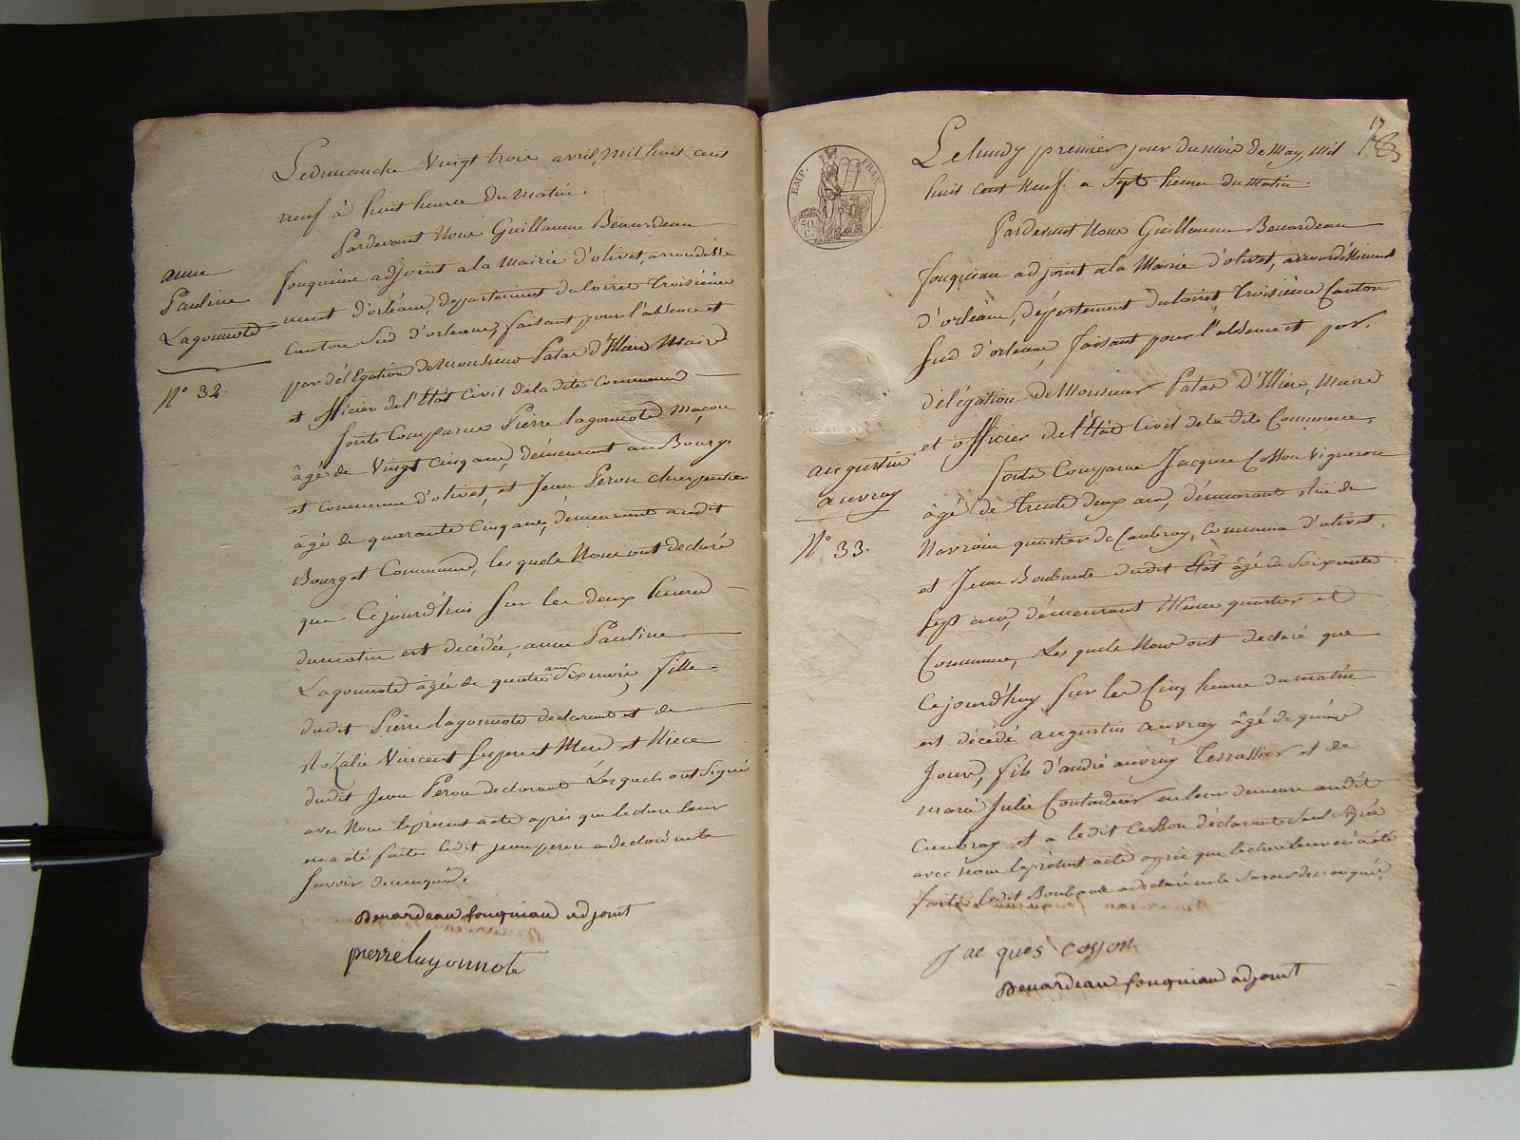 Le dimanche Vingt trois avril, mil huit cent
neuf à huit heures du matin.
Pardevant Nous Guillaume Benardeau
fouqueau adjoint a la Mairie d'olivet, arrondisse
ment d'orléans, département du loiret Troisième
Canton Sud d'orleans, faisant pour l'absence et
par délégation de Monsieur Patas d'Illiers Maire
et officier de l'Etat Civil de la dite Commune
anne
Pauline
Lagonnote
N° 32.
Sont Comparus Pierre lagonnote maçon
âgé de Vingt Cinq ans, demeurant au Bourg
et Commune d'olivet, et Jean Peron charpentier
âgé de quarante Cinq ans, demeurant audit
Bourg et Commune, les quels Nous ont declaré
que Cejourd'hui Sur les deux heures
du matin est décédée, anne Pauline
Lagonnote âgée de quatre ans dix mois, fille
dudit Pierre lagonnote declarant et de
Rozalie Vincent Ses pere et Mere et Niece
dudit Jean Peron declarant Lesquels ont Signé
avec Nous le present acte après que lecture leur
en a été faite ledit jean peron a declaré ne le
Savoir de ce enquis.
Benardeau fouquiau adjoint
pierre lagonnote
17
EMP. FRAN.
Le lundy premier jour du mois de May, mil
huit cent Neuf. a Sept heures du Matin.
Pardevant Nous Guillaume Benardeau
fouqueau adjoint a la Mairie d'olivet, arrondissement
d'orléans, département du loiret, Troisième Canton
Sud d'orleans, faisant pour l'absence et par
délégation de Monsieur Patas D'Illiers, Maire
et officier de l'Etat Civil de la dite Commune,
augustin
auvray
N° 33.
Sont Comparus Jacques Cosson Vigneron
âgé de trente deux ans, demeurant Rue de
quartier de Caubray, Commune d'olivet.
et Jean dudit Etat âgé de Soixante
Sept ans, demeurant Même quartier et
Commune, Les quels Nous ont declaré que
Cejourd'huy Sur les Cinq heures du matin
est décédé augustin auvray âgé de quinze
Jours, fils d'andré auvray Terrassier et de
marie Julie en leur demeure audit
Caubray et a ledit Cosson déclarant Seul Signé
avec Nous le présent acte après que lecture leur en a été
faite ledit a déclaré ne le Savoir de ce enquis.
jacques cosson
Benardeau fouquiau adjoint